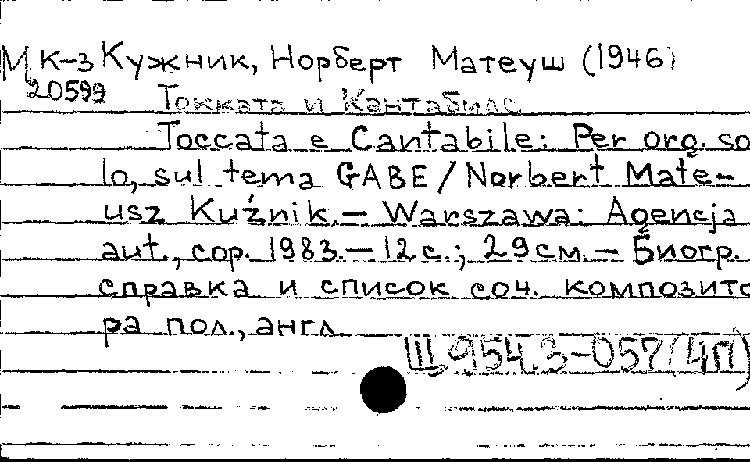 М К-3 Кужник, Норберт Матеуш (1946)
20599 Токката и Кантабиле
Toccata e Cantabile: Per org. so
lo, sul tema GABE / Norbert Mate-
usz Kuźnik. — Warszawa: Agencja
aut., cop. 1983. — 12 с.; 29 см. — Биогр.
справка и список соч. композито
ра пол., англ
Ш 954.3-057(4П)